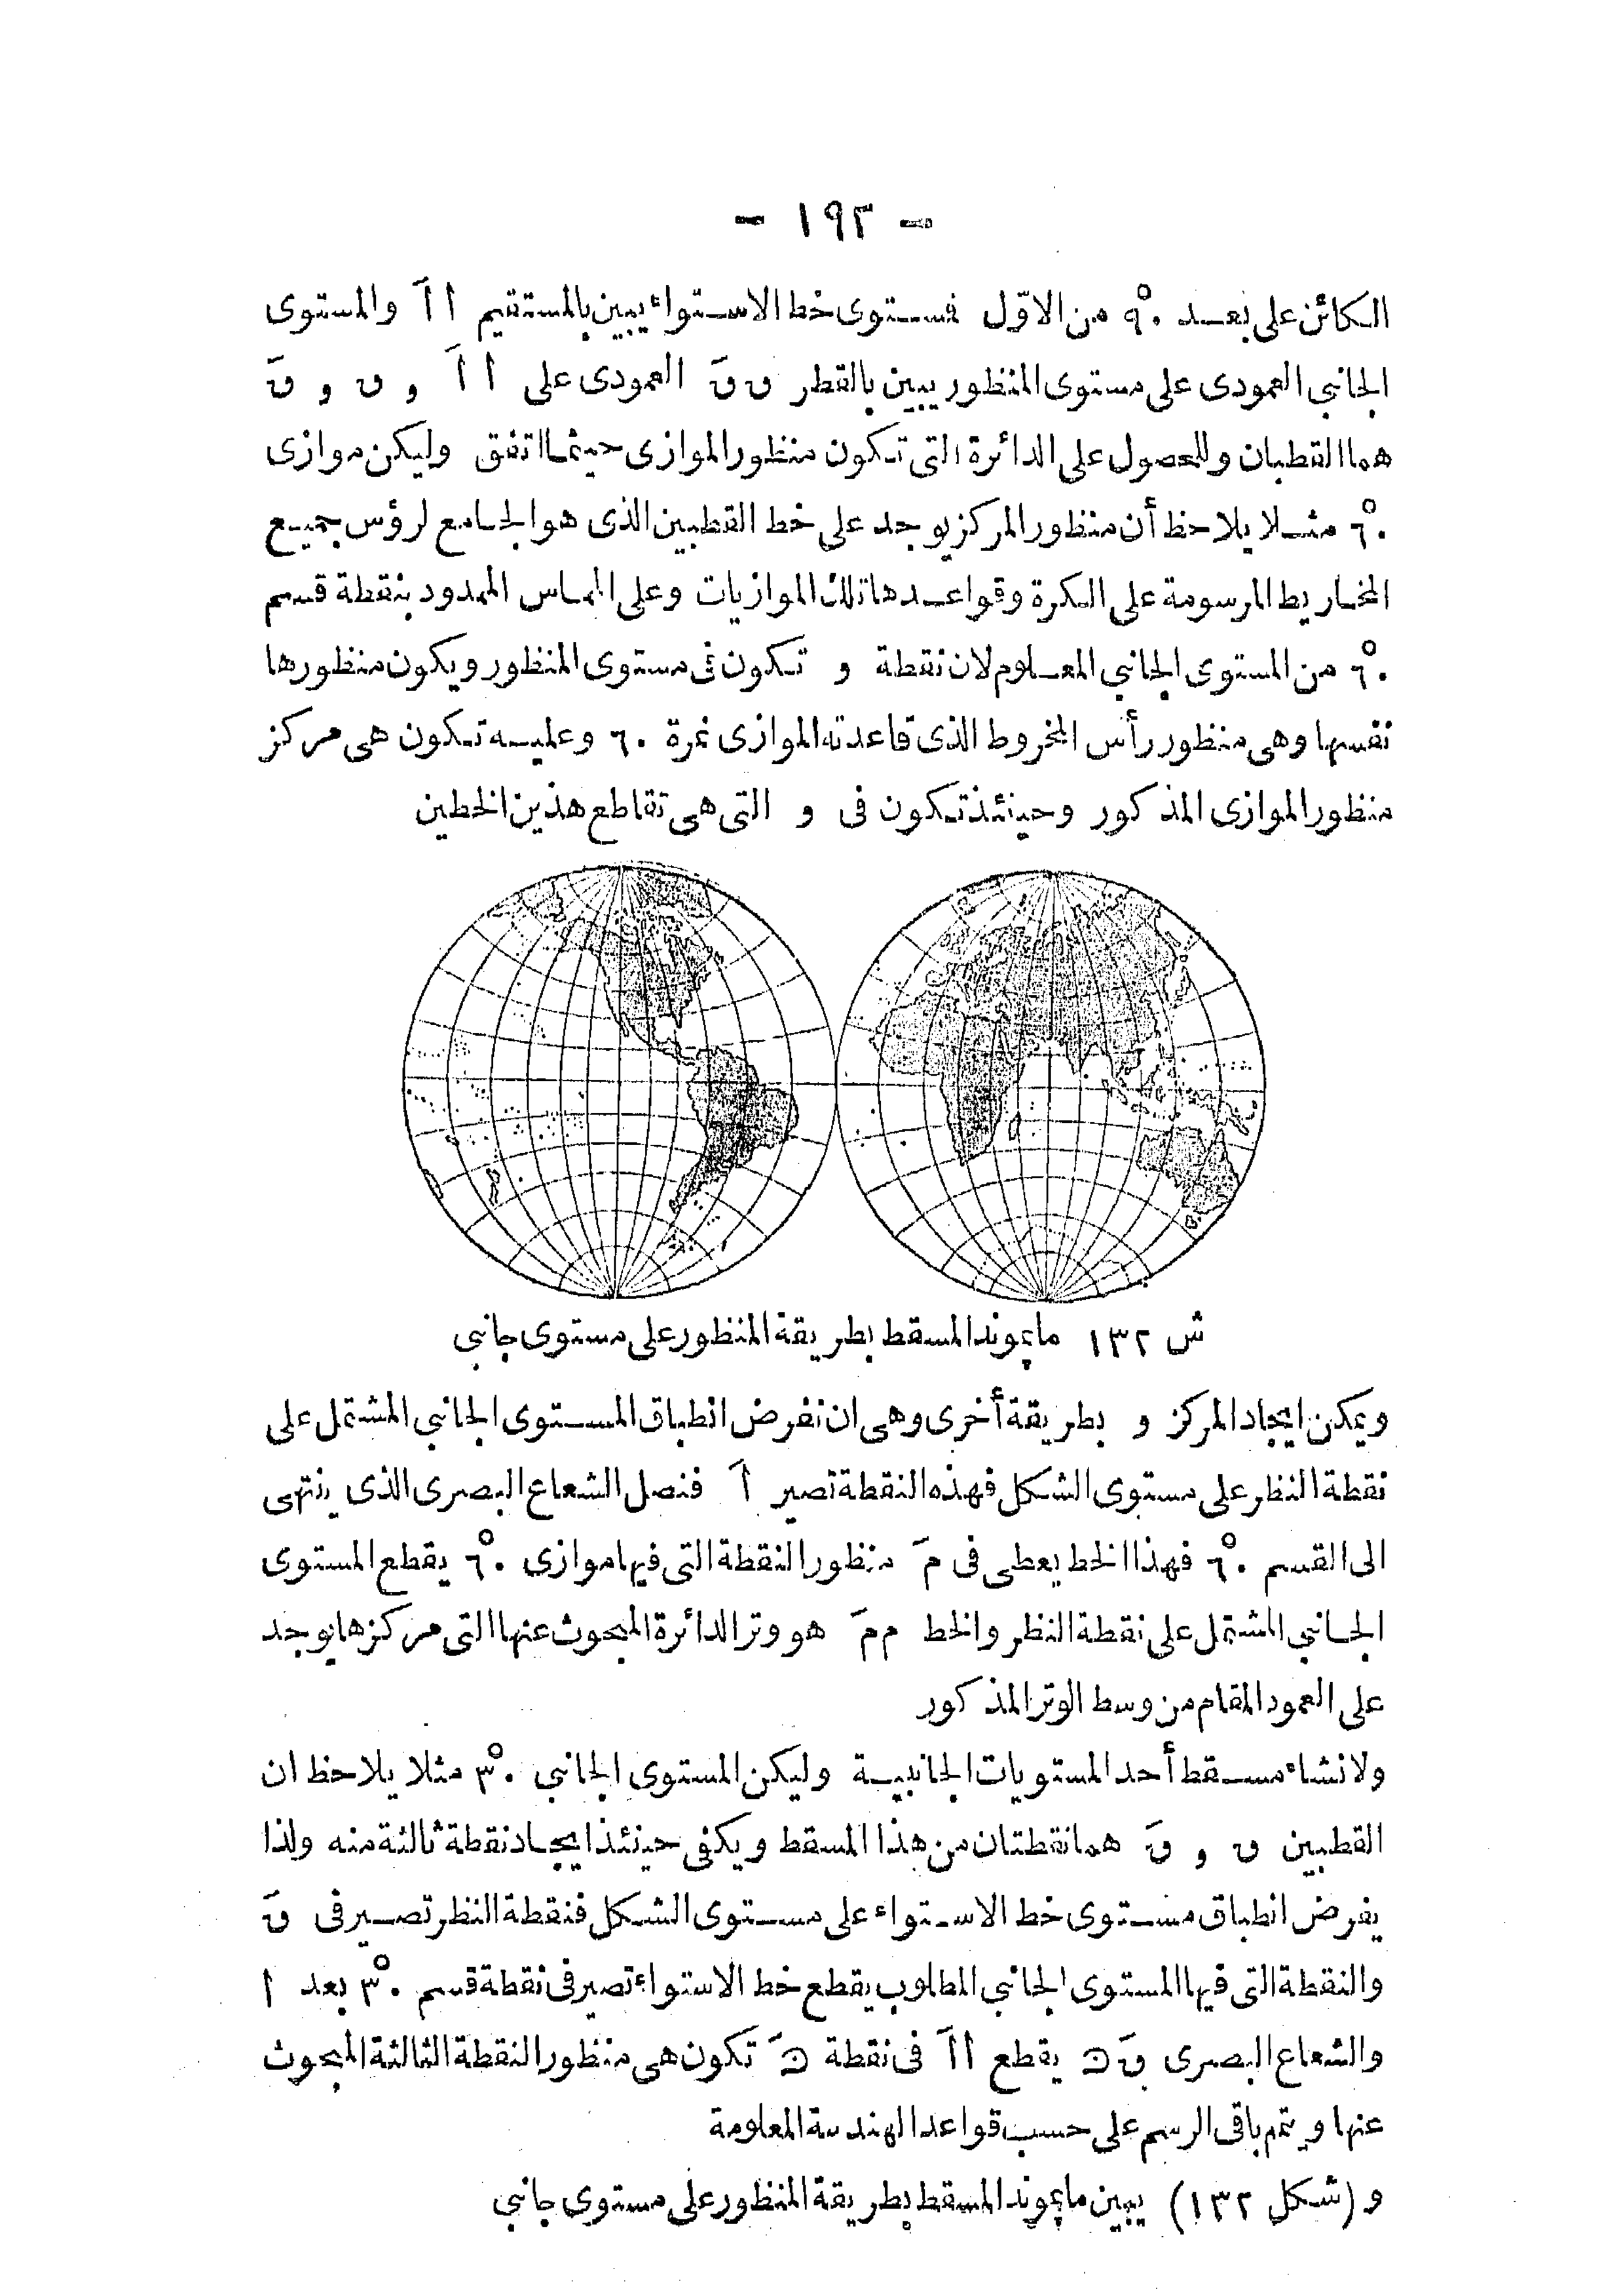 - ١٩٢ -
الكائن على بعد ٩٠° من الاوّل فستوى خط الاستواء يبين بالمستقيم أ أَ والمستوى
الجانبى العمودى على مستوى المنظور يبين بالقطر ق قَ العمودى على أ أَ و ق و قَ
هما القطبان وللحصول على الدائرة التى تكون منظور الموازى حيثما اتفق وليكن موازى
٦٠° مثلا يلاحظ أن منظور المركز يوجد على خط القطبين الذى هو الجامع لرؤس جميع
المخاريط المرسومة على الكرة وقواعدها تلك الموازيات وعلى المماس الممدود بنقطة قسم
٦٠° من المستوى الجانبى المعلوم لان نقطة و تكون فى مستوى المنظور ويكون منظورها
نفسها وهى منظور رأس المخروط الذى قاعدته الموازى نمرة ٦٠ وعليه تكون هى مركز
منظور الموازى المذكور وحينئذ تكون فى و التى هى تقاطع هذين الخطين
ش ١٣٢ مايموند المسقط بطريقة المنظور على مستوى جانبى
ويمكن ايجاد المركز و بطريقة أخرى وهى ان نفرض انطباق المستوى الجانبى المشتمل على
نقطة النظر على مستوى الشكل فهذه النقطة تصير أَ فنصل الشعاع البصرى الذى ينتهى
الى القسم ٦٠° فهذا الخط يعطى فى مَ منظور النقطة التى فيها موازى ٦٠° يقطع المستوى
الجانبى المشتمل على نقطة النظر والخط م مَ هو وتر الدائرة المبحوث عنها التى مركزها يوجد
على العمود المقام من وسط الوتر المذكور
ولانشاء مسقط أحد المستويات الجانبية وليكن المستوى الجانبى ٣٠° مثلا يلاحظ ان
القطبين ق و قَ هما نقطتان من هذا المسقط ويكفى حينئذ ايجاد نقطة ثالثة منه ولذا
يفرض انطباق مستوى خط الاستواء على مستوى الشكل فنقطة النظر تصير فى قَ
والنقطة التى فيها المستوى الجانبى المطلوب يقطع خط الاستواء تصير فى نقطة قسم ٣٠° بعد أ
والشعاع البصرى قَ ن يقطع أ أَ فى نقطة نَ تكون هى منظور النقطة الثالثة المبحوث
عنها ويتمم باقى الرسم على حسب قواعد الهندسة المعلومة
و (شكل ١٣٢) يبين مايموند المسقط بطريقة المنظور على مستوى جانبى